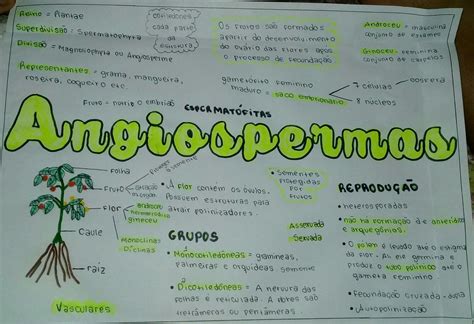 Reino = Plantae
Superdivisão = Spermatophyta
Divisão = Magnoliophyta ou Angiosperma
Representantes = grama, mangueira,
roseira, coqueiro etc
cotilédones
essa parte
da
estrutura
Os frutos são formados
apartir do desenvolvimento
do ovário das flores após
o processo de fecundação
Androceu = masculina
conjunto de estames
Gineceu = feminina
conjunto de carpelos
gametófito feminino
maduro = saco embrionário
7 células
8 núcleos
oosfera
Fruto = nutrir o embrião
ESPERMATÓFITAS
Angiospermas
Folha
Fruto
Flor
androceu
hermafrodita
gineceu
Monoclinas
Diclinas
Caule
raiz
Vasculares
• A Flor contém os óvulos.
Possuem estruturas para
atrair polinizadores.
• Sementes
protegidas
por
frutos
GRUPOS
Assexuada
Sexuada
• Monocotiledôneas = gramíneas,
palmeiras e orquídeas semente
• Dicotiledôneas = A nervura das
folhas é reticulada. A flores são
tetrâmeras ou pentâmeras.
REPRODUÇÃO
• heterosporadas
• não há formação de anterídios
e arquegônios.
• O pólen é levado até o estigma
da flor. Ali ele germina e
produz o tubo polínico até o
gameta feminino
• Fecundação cruzada
• Autopolinização